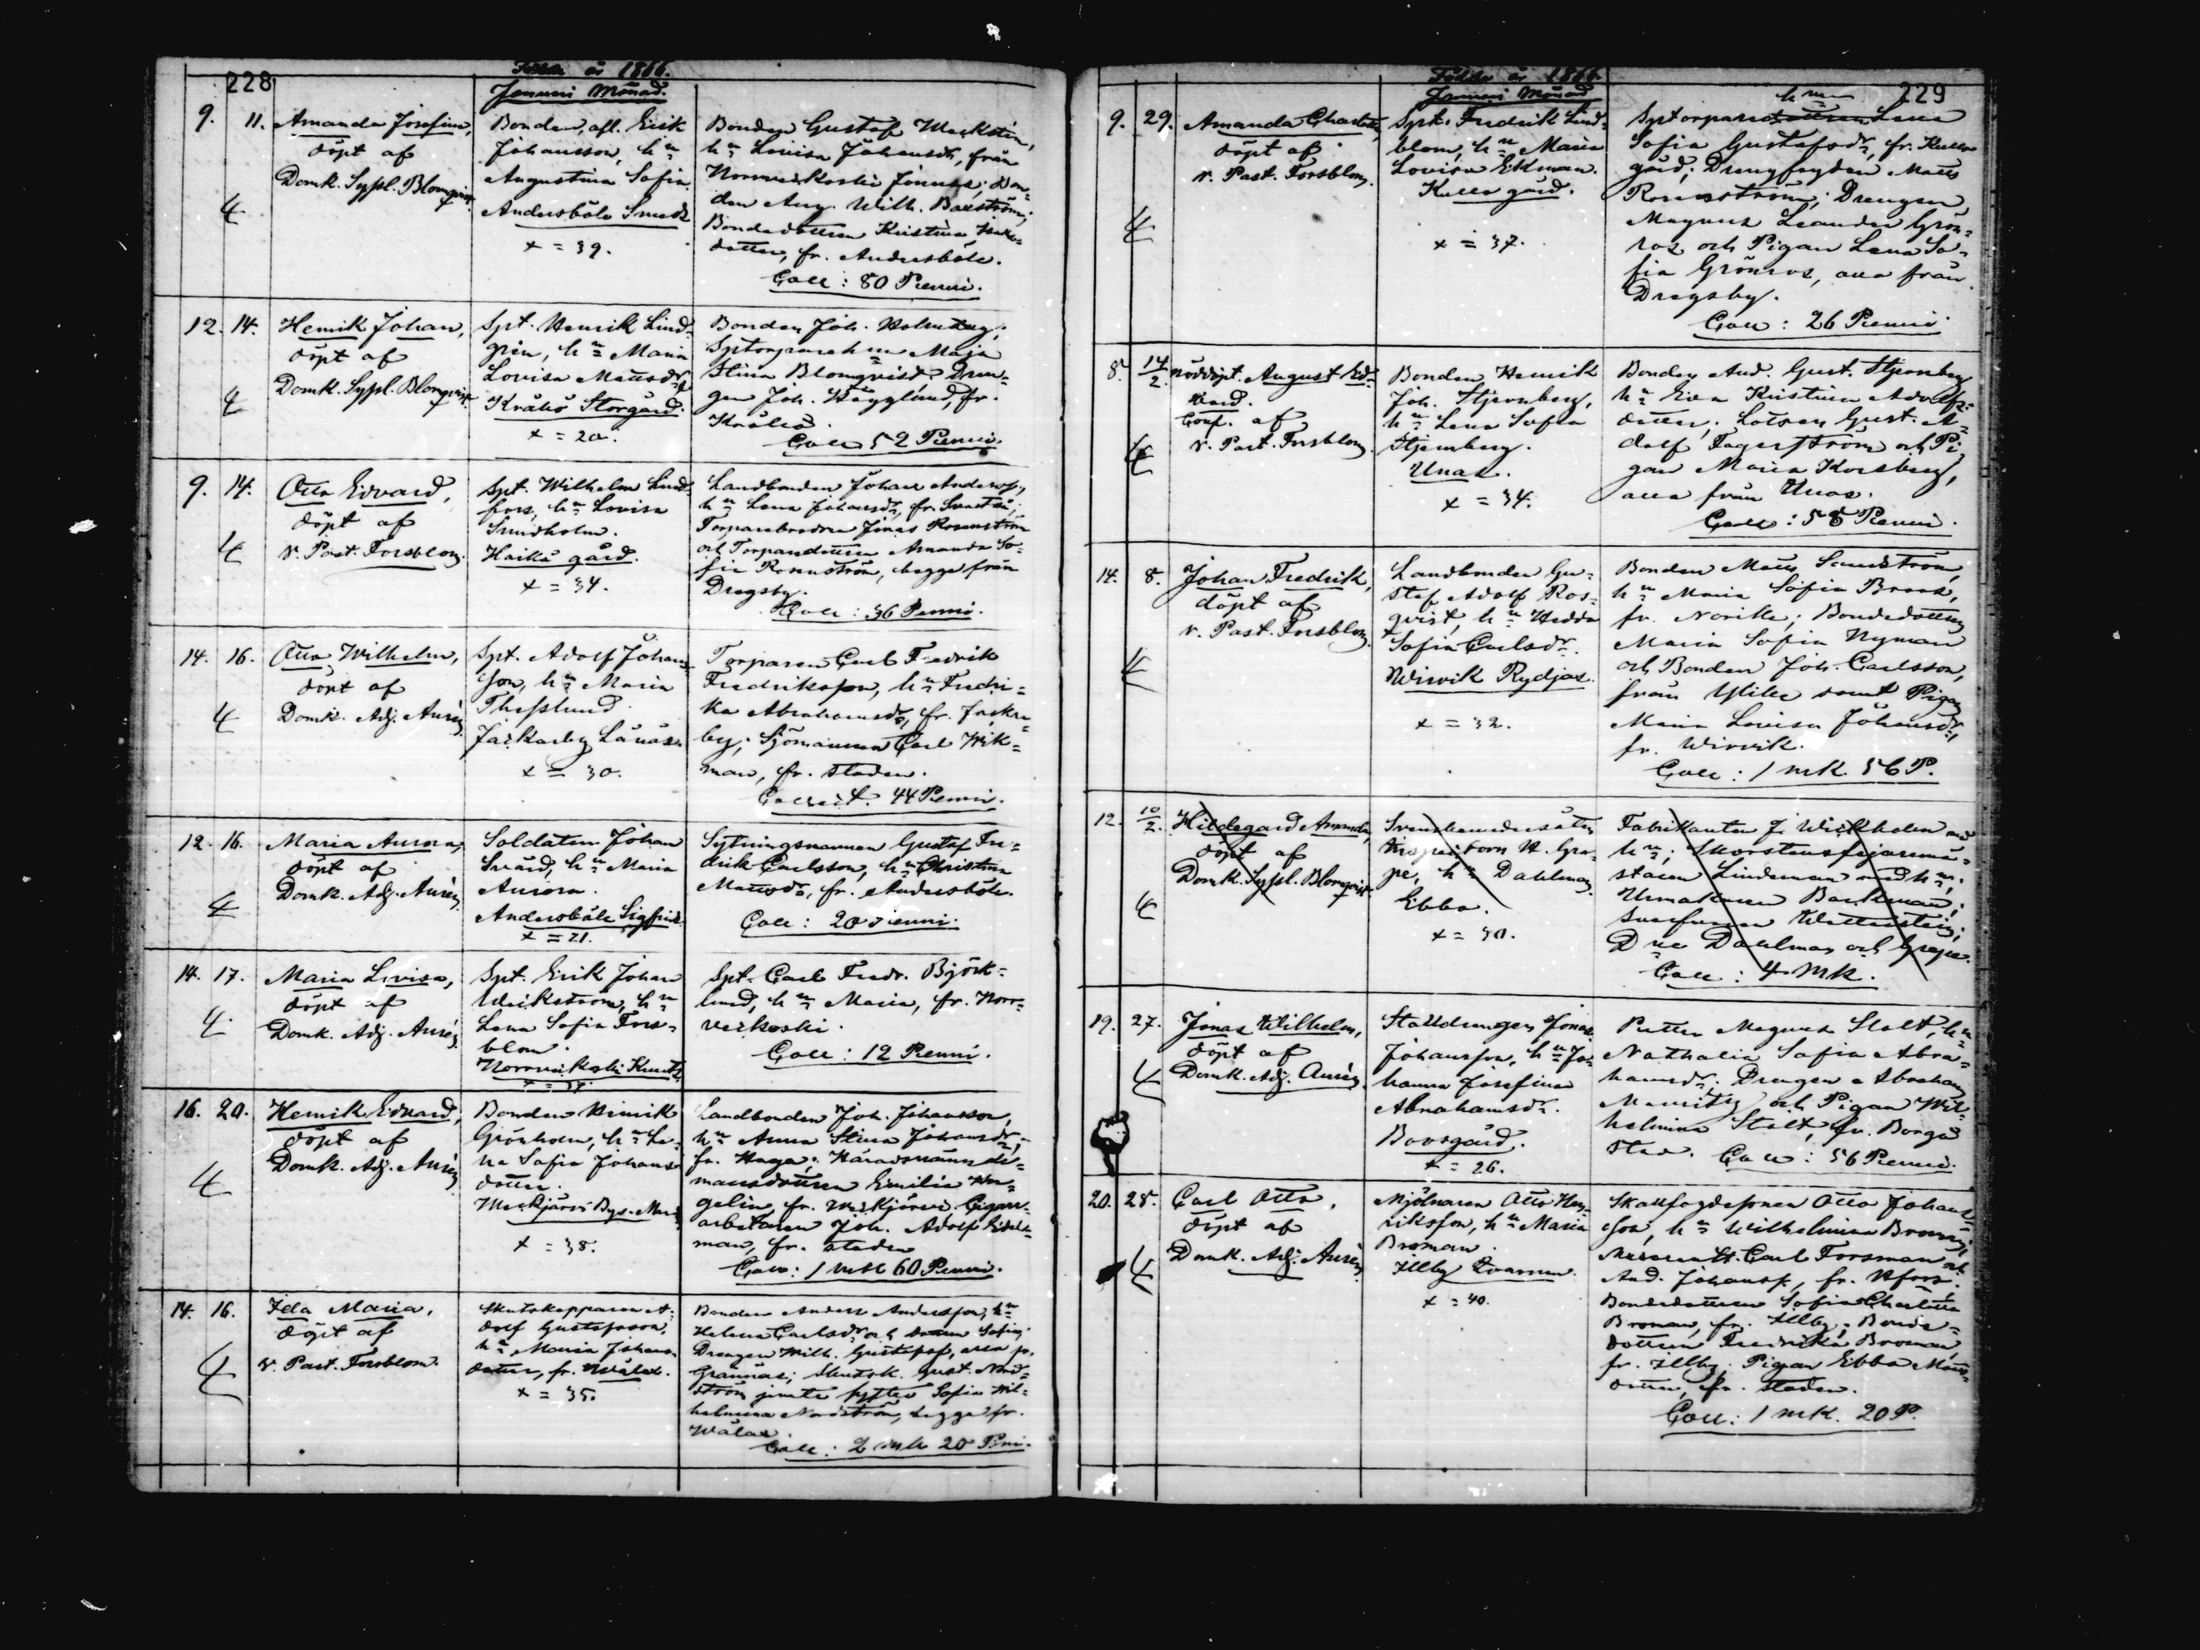 228
Födde år 1866.
Januari Månad.
9. 11. Amanda Josefina,
döpt af
Domk. Sypl. Blomqvist.
Bonden, afl. Erik
Johansson, hn
Augustina Sofia
Andersböle Smeds
x = 39.
Bonden Gustaf
hn Lovisa Johansdr, från
Norrveckoski Jonnas;
den Aug. Wilh.
Bondedottren Kristina
dotter, fr. Andersböle.
Coll: 80 Penni.
12. 14. Henrik Johan,
döpt af
Domk. Sypl. Blomqvist.
Spt. Henrik Lind-
gren, hn Maria
Lovisa Mattsdr
Kråkö Storgård.
x = 20.
Bonden Joh. Holmberg,
Sptorparehn Maja
Stina Blomqvist, Dren-
gen Joh. Hägglund, fr.
Kråkö.
Coll 52 Penni.
9. 14. Otto Edvard,
döpt af
v. Past. Forsblom.
Spt. Wilhelm Lind-
fors, hn Lovisa
Sundholm.
Haikå gård.
x = 34.
Landbonden Johan Andersson,
hn Lena Johansdr, fr. Svartså;
Torparebrodren Jonas Rosenström
och Torparedottren Amanda So-
fia Rosenström, begge från
Dregsby.
Coll: 36 Penni.
14. 16. Otto Wilhelm,
döpt af
Domk. Adj. Aurén.
Spt. Adolf Johans-
son, hn Maria
Theslund.
Jackarby Lånäs.
x = 30.
Torparen Carl Fredrik
Fredriksson, hn Fredri-
ka Abrahamsdr, fr. Jacka-
by; Sjömannen Carl Wik-
man, fr. staden.
44 Penni.
12. 16. Maria Aurora,
döpt af
Domk. Adj. Aurén.
Soldaten Johan
Svärd, hn Maria
Aurora.
Andersböle Sigfrids
x = 21.
Sytningsmannen Gustaf Fre-
drik Carlsson, hn Christina
Mattsdr, fr. Andersböle.
Coll: 20 Penni.
14. 17. Maria Lovisa,
döpt af
Domk. Adj. Aurén.
Spt. Erik Johan
Weckström, hn
Lena Sofia Fors-
blom.
Norrveckoski Knuts
Spt. Carl Fredr. Björk-
lund, hn Maria, fr. Norr-
veckoski.
Coll: 12 Penni.
16. 20. Henrik Edvard,
döpt af
Domk. Adj. Aurén.
Bonden Henrik
Grönholm, hn Le-
na Sofia Johans-
dotter.
x = 38.
Landbonden Joh. Johansson,
hn Anna Stina Johansdr,
fr. Haga;
mansdottren Emilia
gelin, fr. Cigarr-
arbetaren Joh. Adolf
man, fr. staden
Coll: 1 mk 60 Penni.
14. 16. Ida Maria,
döpt af
v. Past. Forsblom.
Skutskepparen A-
dolf Gustafsson,
hn Maria Johans-
dotter, fr. Wålax.
x = 35.
Bonden Anders Andersson, hn
Helena Carlsdr och
Drengen Wilh. Gustafss, alla fr.
Grännäs; Skutsk. Gust. Nord-
ström jemte syster Sofia Wil-
helmina Nordström, begge fr.
Wålax.
Coll: 2 mk 20 Pni.
229
Födde år 1866.
Januari Månad
9. 29. Amanda Charlotta,
döpt af
v. Past. Forsblom.
Spt. Fredrik Lind-
blom, hn Maria
Lovisa Ekman.
Kullo gård.
x = 37.
hn
Sptorpare Lena
Sofia Gustafsdr, fr. Kullo
gård; Drengfogden Matts
Rosenström; Drengen
Magnus Leander Grön-
ros och Pigan Lena So-
fia Grönros, alla från
Dregsby.
Coll: 26 Penni
8. 14/2. nöddöpt. August Ed-
vard.
Conf. af
v. Past. Forsblom.
Bonden Henrik
Joh. Stjernberg,
hn Lena Sofia
Stjernberg.
Unas.
x = 34.
Bonden And. Gust. Stjernberg
hn Eva Kristina Adolfs-
dotter; Lotsen Gust. A-
dolf Fagerström och Pi-
gan Maria Korsberg,
alla från Unas.
Coll: 58 Penni.
14. 8. Johan Fredrik,
döpt af
v. Past. Forsblom.
Landbonden Gu-
staf Adolf Ros-
qvist, hn Hedda
Sofia Carlsdr.
Wirvik Rydjas.
x = 32.
Bonden Matts Sandström,
hn Maria Sofia
fr. Norike; Bondedottren
Maria Sofia Nyman
och Bonden Joh. Carlsson,
från samt Pigan
Maria Lovisa Johansdr,
fr. Wirvik.
Coll: 1 mk. 56 P.
12. 10/2. Hildegard Amanda,
döpt af
Domk. Sypl. Blomqvist.
pe, hn Dahlman
Ebbo.
x = 30.
Fabrikanten J. Wickholm med
hn; Skorstensfejaremä-
staren Lindeman med hn;
Urmakaren
Dne Dahlman och Grape.
Coll: 4 mk.
19. 27. Jonas Wilhelm,
döpt af
Domk. Adj. Aurén.
Stalldrengen Jonas
Johansson, hn Jo-
hanna Josefina
Abrahamsdr.
Bovsgård.
x = 26.
Magnus Stolt, hn
Nathalia Sofia Abra-
hamsdr. Drengen Abraham
Mauritz och Pigan Wil-
helmina Stolt, fr. Borgå
stad. Coll: 56 Penni.
20. 28. Carl Otto,
döpt af
Domk. Adj. Aurén.
Mjölnaren Otto Hen-
riksson, hn Maria
Broman.
Illby Qvarnen.
x = 40.
Skallfogdesonen Otto Johans-
son, hn Wilhelmina Broman;
Carl Forsman och
And. Johanss., fr. Hfors.
Bondedottren Sofia Charlotta
Broman, fr. Illby; Bonde-
dottren Fredrika Broman,
fr. Illby; Pigan Ebba Matts-
dotter, fr. staden.
Coll: 1 mk. 20 P.